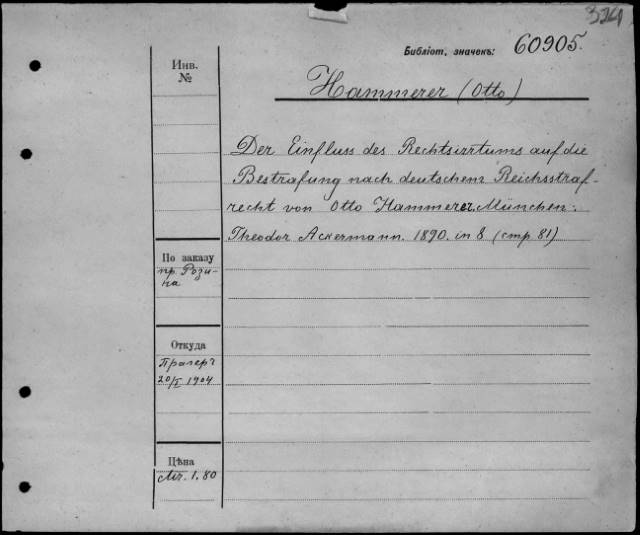 324
Библіот. значекъ: 60905.
Инв.
№
Hammerer (Otto)
Der Einfluss des Rechtsirrtums auf die
Bestrafung nach deutschem Reichsstraf-
recht von Otto Hammerer. München.
Theodor Ackermann. 1890. in 8 (стр 81)
По заказу
пр. Рози-
на
Откуда
Прагеръ
20/I 1904
Цѣна
Mr. 1.80